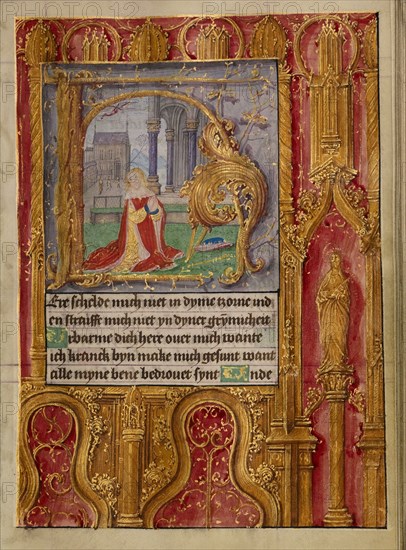 Ere schelde mich niet in dyme tzorne ind
en straiff mich niet yn dyner grymicheit
Erbarme dich here over mich wante
ich kranck byn make mich gesunt want
alle myne bene bedrovet synt Inde